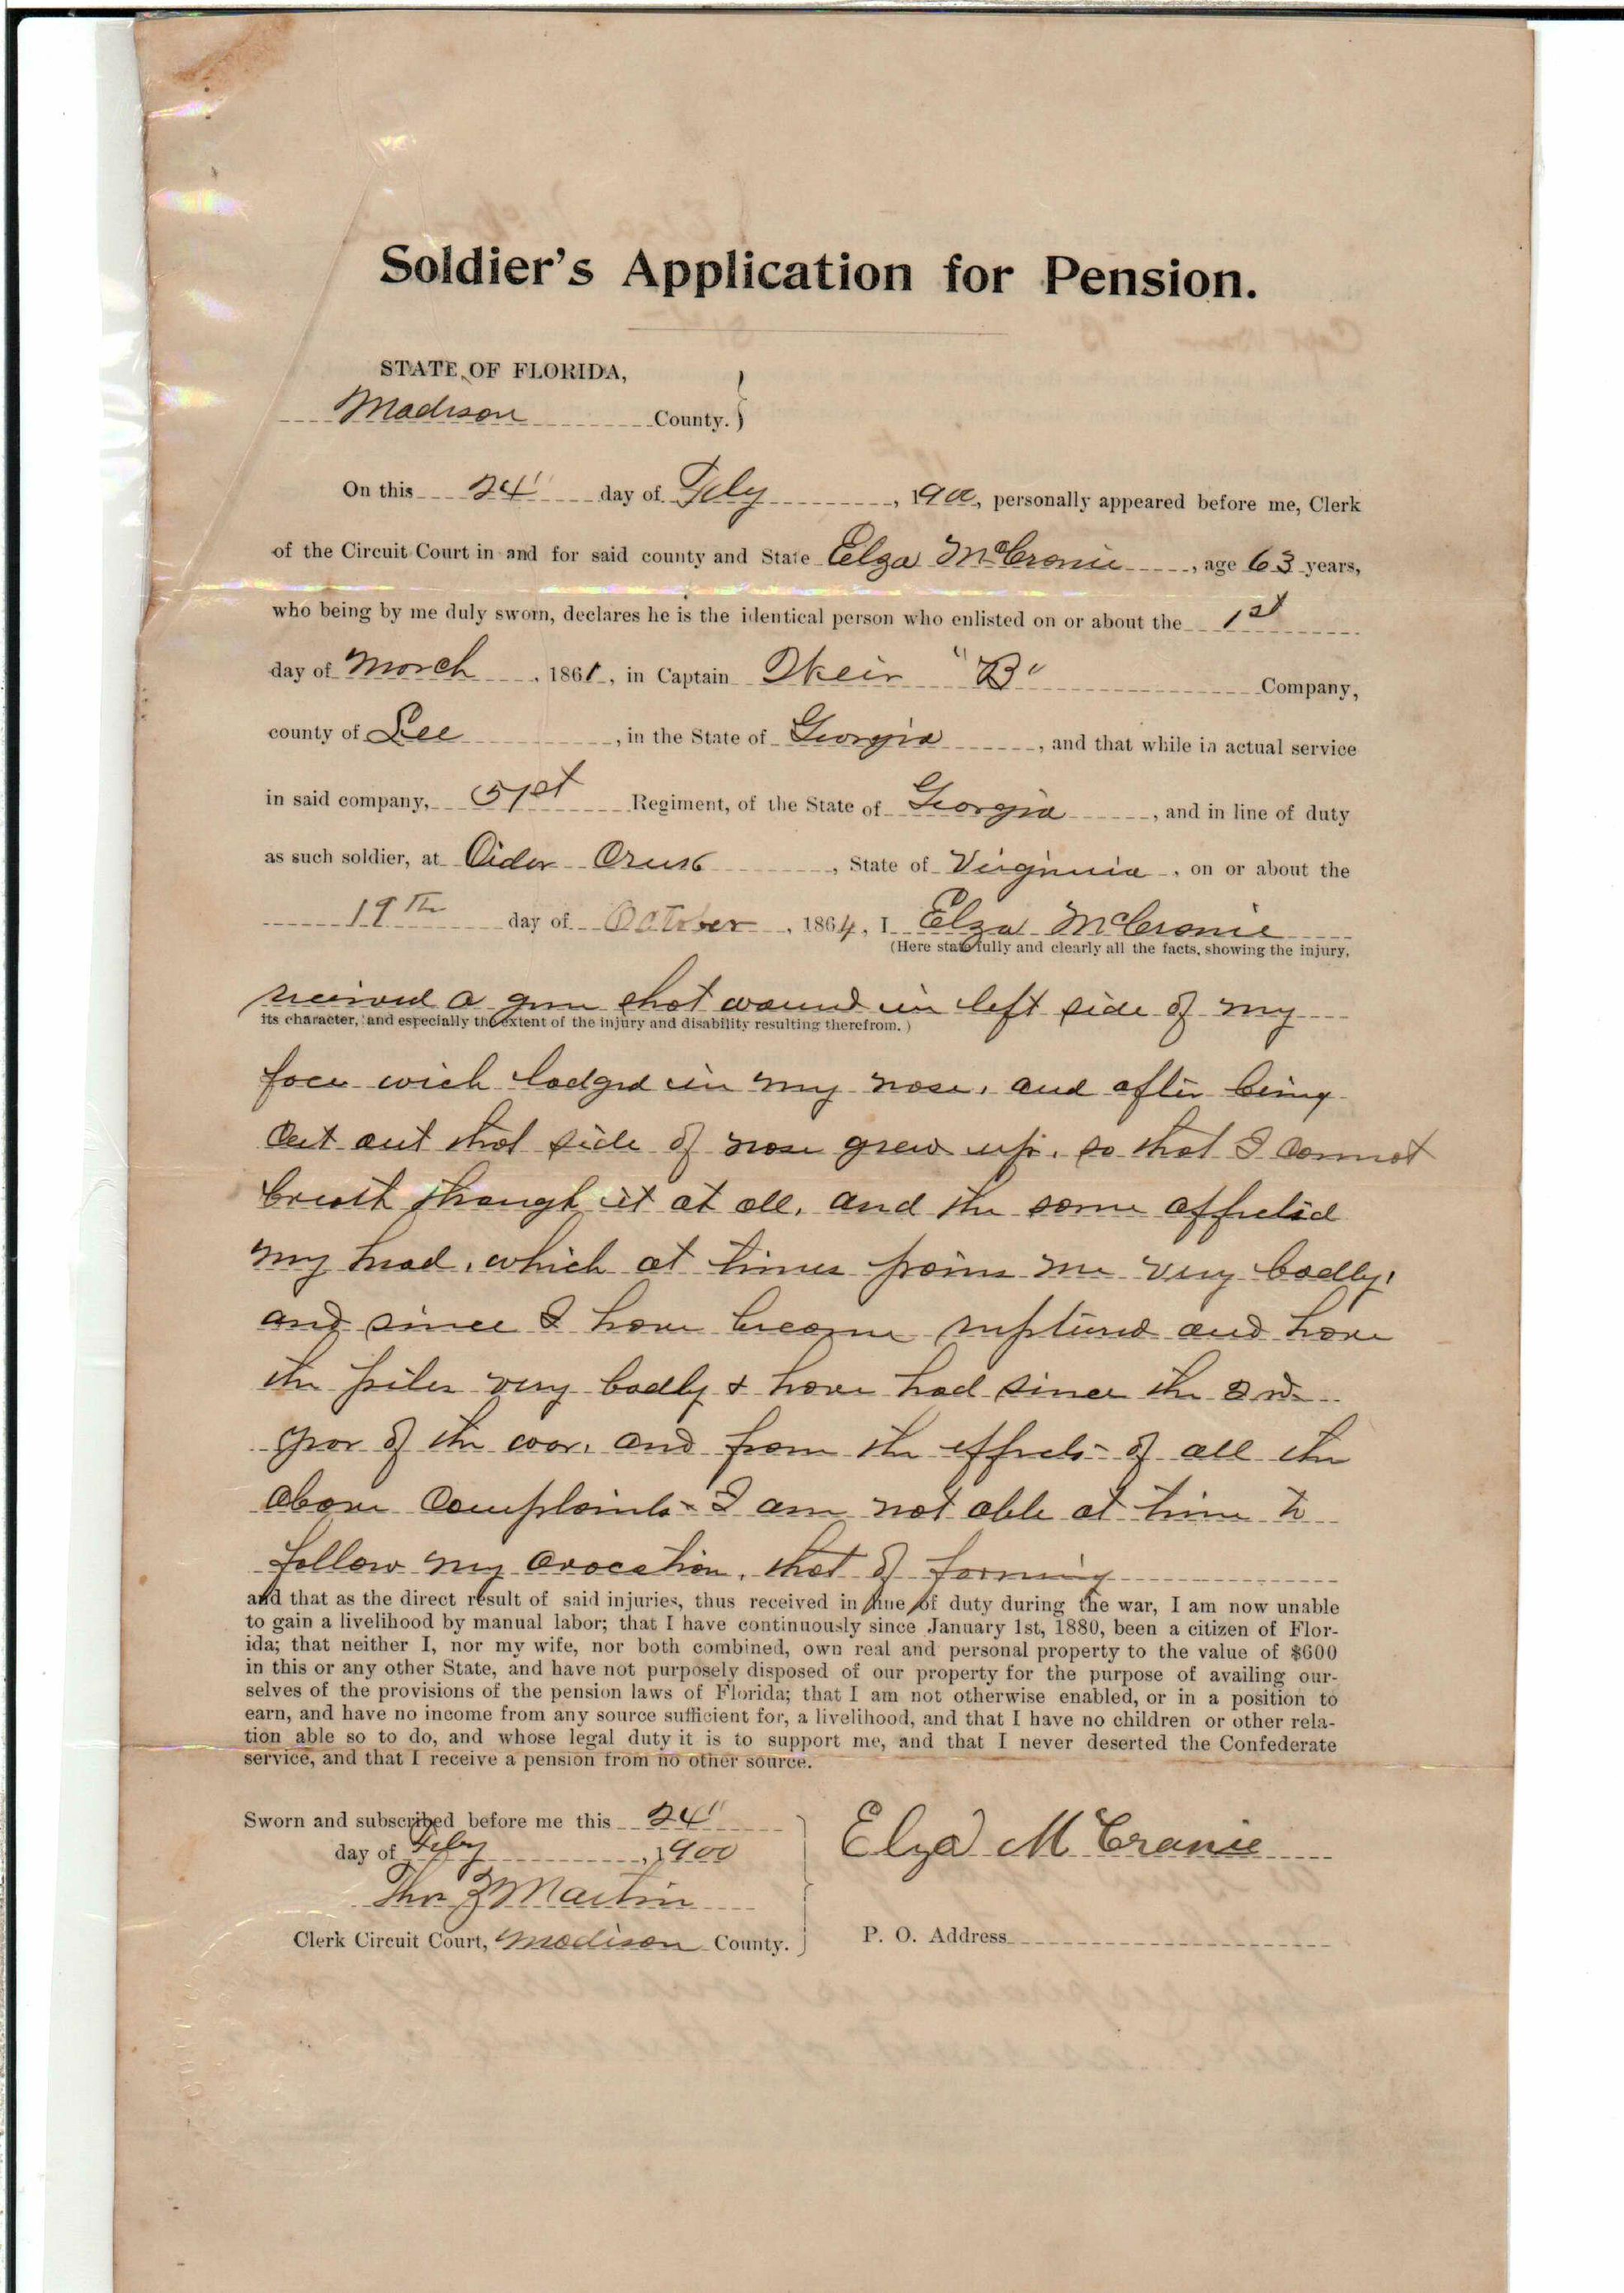 Soldier's Application for Pension.
STATE OF FLORIDA,
Madison County. }
On this 24" day of Feby, 1900, personally appeared before me, Clerk
of the Circuit Court in and for said county and State Elza McCranie, age 63 years,
who being by me duly sworn, declares he is the identical person who enlisted on or about the 1st
day of March, 1861, in Captain "B" Company,
county of Lee, in the State of Georgia, and that while in actual service
in said company, 51st Regiment, of the State of Georgia, and in line of duty
as such soldier, at Cidar Creek, State of Virginnia, on or about the
19Th day of October, 1864, I Elza McCranie
(Here state fully and clearly all the facts, showing the injury,
received a gun shot wound in left side of my
its character, and especially the extent of the injury and disability resulting therefrom.)
face wich lodged in my nose, and after being
cut out that side of nose grew up, so that I cannot
breath through it at all, and the same affected
my head, which at times pains me very badly,
and since I have become ruptured and have
the piles very badly & have had since the 2nd
year of the war, and from the effects of all the
above complaints I am not able at time to
follow my avocation, that of farming
and that as the direct result of said injuries, thus received in line of duty during the war, I am now unable
to gain a livelihood by manual labor; that I have continuously since January 1st, 1880, been a citizen of Flor-
ida; that neither I, nor my wife, nor both combined, own real and personal property to the value of $600
in this or any other State, and have not purposely disposed of our property for the purpose of availing our-
selves of the provisions of the pension laws of Florida; that I am not otherwise enabled, or in a position to
earn, and have no income from any source sufficient for, a livelihood, and that I have no children or other rela-
tion able so to do, and whose legal duty it is to support me, and that I never deserted the Confederate
service, and that I receive a pension from no other source.
Sworn and subscribed before me this 24"
day of Feby, 1900
Elza McCranie
Thos Z Martin
Clerk Circuit Court, Madison County.
P. O. Address